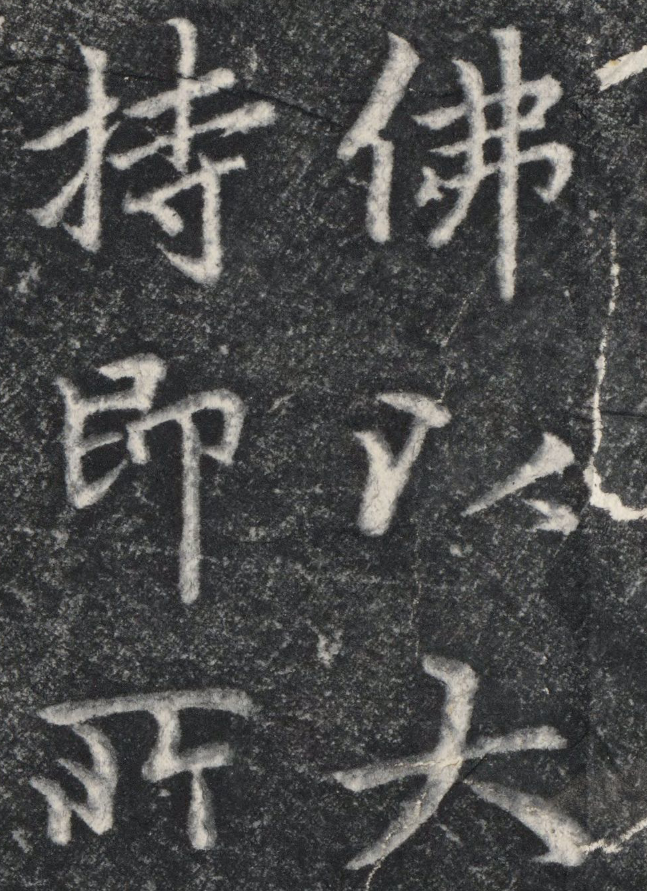 佛以大
持師所